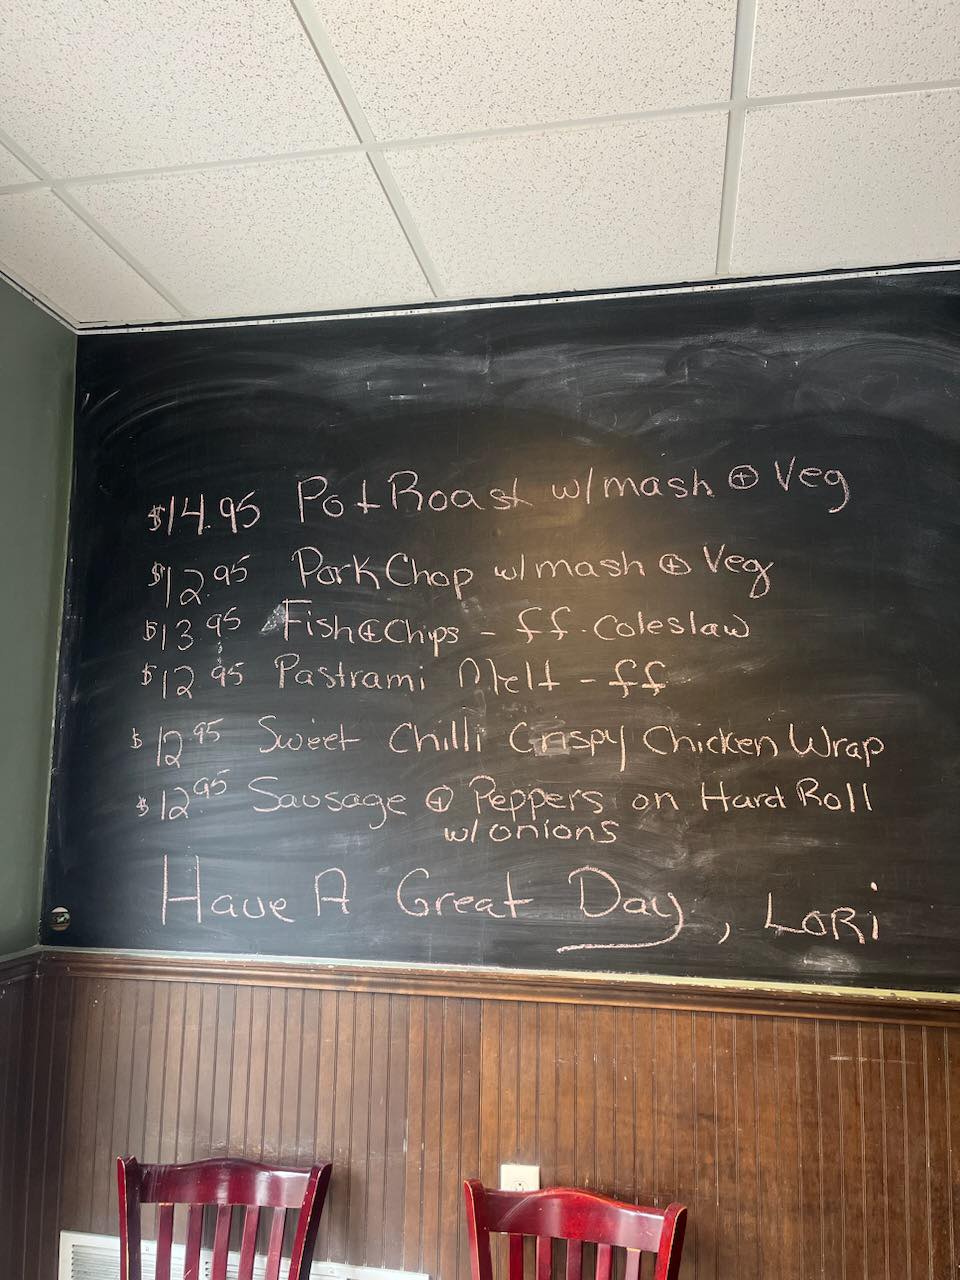 $14.95 Pot Roast w/mash + Veg
$12.95 Pork Chop w/mash + Veg
$13.95 Fish + Chips - ff. Coleslaw
$12.95 Pastrami Melt - ff
$12.95 Sweet Chilli Crispy Chicken Wrap
$12.95 Sausage + Peppers on Hard Roll
w/onions
Have A Great Day, LORi